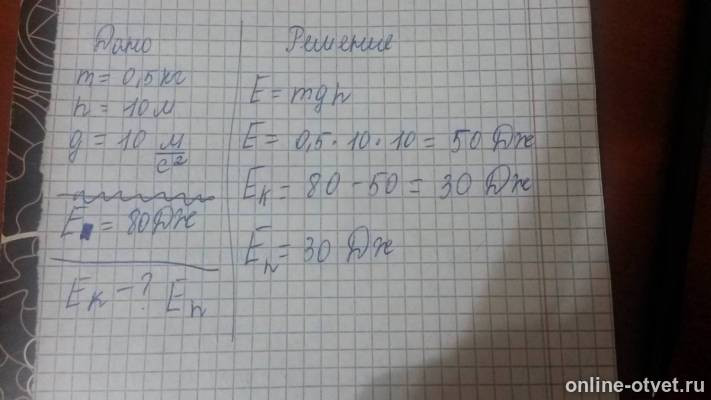 Дано
m = 0,5 кг
h = 10 м
g = 10 м/с²
E = 80 Дж
Eк - ? Eп
Решение
E = mgh
E = 0,5 · 10 · 10 = 50 Дж
Eк = 80 - 50 = 30 Дж
Eп = 30 Дж
online-otvet.ru